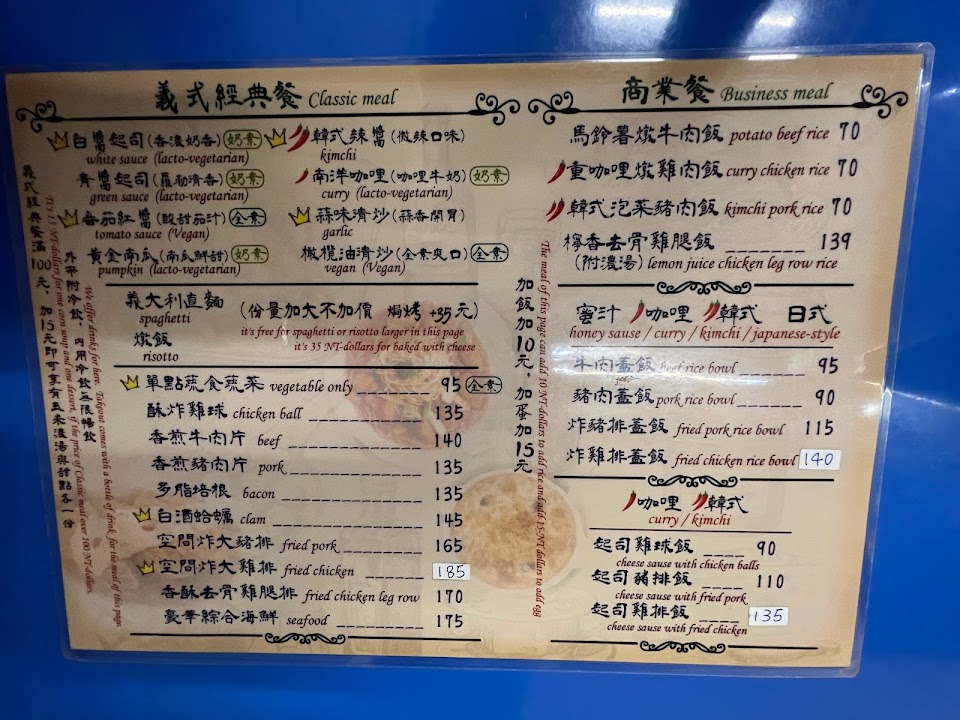 義式經典餐 Classic meal
白醬起司(香濃奶香) 奶素
white sauce (lacto-vegetarian)
韓式辣醬(微辣口味)
kimchi
青醬起司(羅勒清香) 奶素
green sauce (lacto-vegetarian)
南洋咖哩(咖哩牛奶) 奶素
curry (lacto-vegetarian)
番茄紅醬(酸甜茄汁) 全素
tomato sauce (Vegan)
蒜味清炒(蒜香開胃)
garlic
黃金南瓜(南瓜鮮甜) 奶素
pumpkin (lacto-vegetarian)
橄欖油清炒(全素爽口) 全素
vegan (Vegan)
義大利直麵
spaghetti
燉飯
risotto
(份量加大不加價 焗烤 +35元)
it's free for spaghetti or risotto larger in this page
it's 35 NT-dollars for baked with cheese
單點蔬食蔬菜 vegetable only 95 全素
酥炸雞球 chicken ball 135
香煎牛肉片 beef 140
香煎豬肉片 pork 135
多脂培根 bacon 135
白酒蛤蠣 clam 145
空間炸大豬排 fried pork 165
空間炸大雞排 fried chicken 185
香酥去骨雞腿排 fried chicken leg row 170
豪華綜合海鮮 seafood 175
義式經典餐滿100元，加15元即可享有玉米濃湯與甜點各一份
It's 15 NT-dollars for one corn soup and one dessert, if the price of Classic meal over 100 NT-dollars.
外帶附冷飲，內用冷飲無限暢飲
We offer drinks for here. Takeout comes with a bottle of drink for the meal of this page.
商業餐 Business meal
馬鈴薯燉牛肉飯 potato beef rice 70
重咖哩燉雞肉飯 curry chicken rice 70
韓式泡菜豬肉飯 kimchi pork rice 70
檸香去骨雞腿飯 139
(附濃湯) lemon juice chicken leg row rice
蜜汁 咖哩 韓式 日式
honey sause / curry / kimchi / japanese-style
牛肉蓋飯 beef rice bowl 95
豬肉蓋飯 pork rice bowl 90
炸豬排蓋飯 fried pork rice bowl 115
炸雞排蓋飯 fried chicken rice bowl 140
咖哩 韓式
curry / kimchi
起司雞球飯 90
cheese sause with chicken balls
起司豬排飯 110
cheese sause with fried pork
起司雞排飯 135
cheese sause with fried chicken
加飯加10元，加蛋加15元
The meal of this page can add 10 NT-dollars to add rice and add 15-NT dollars to add egg